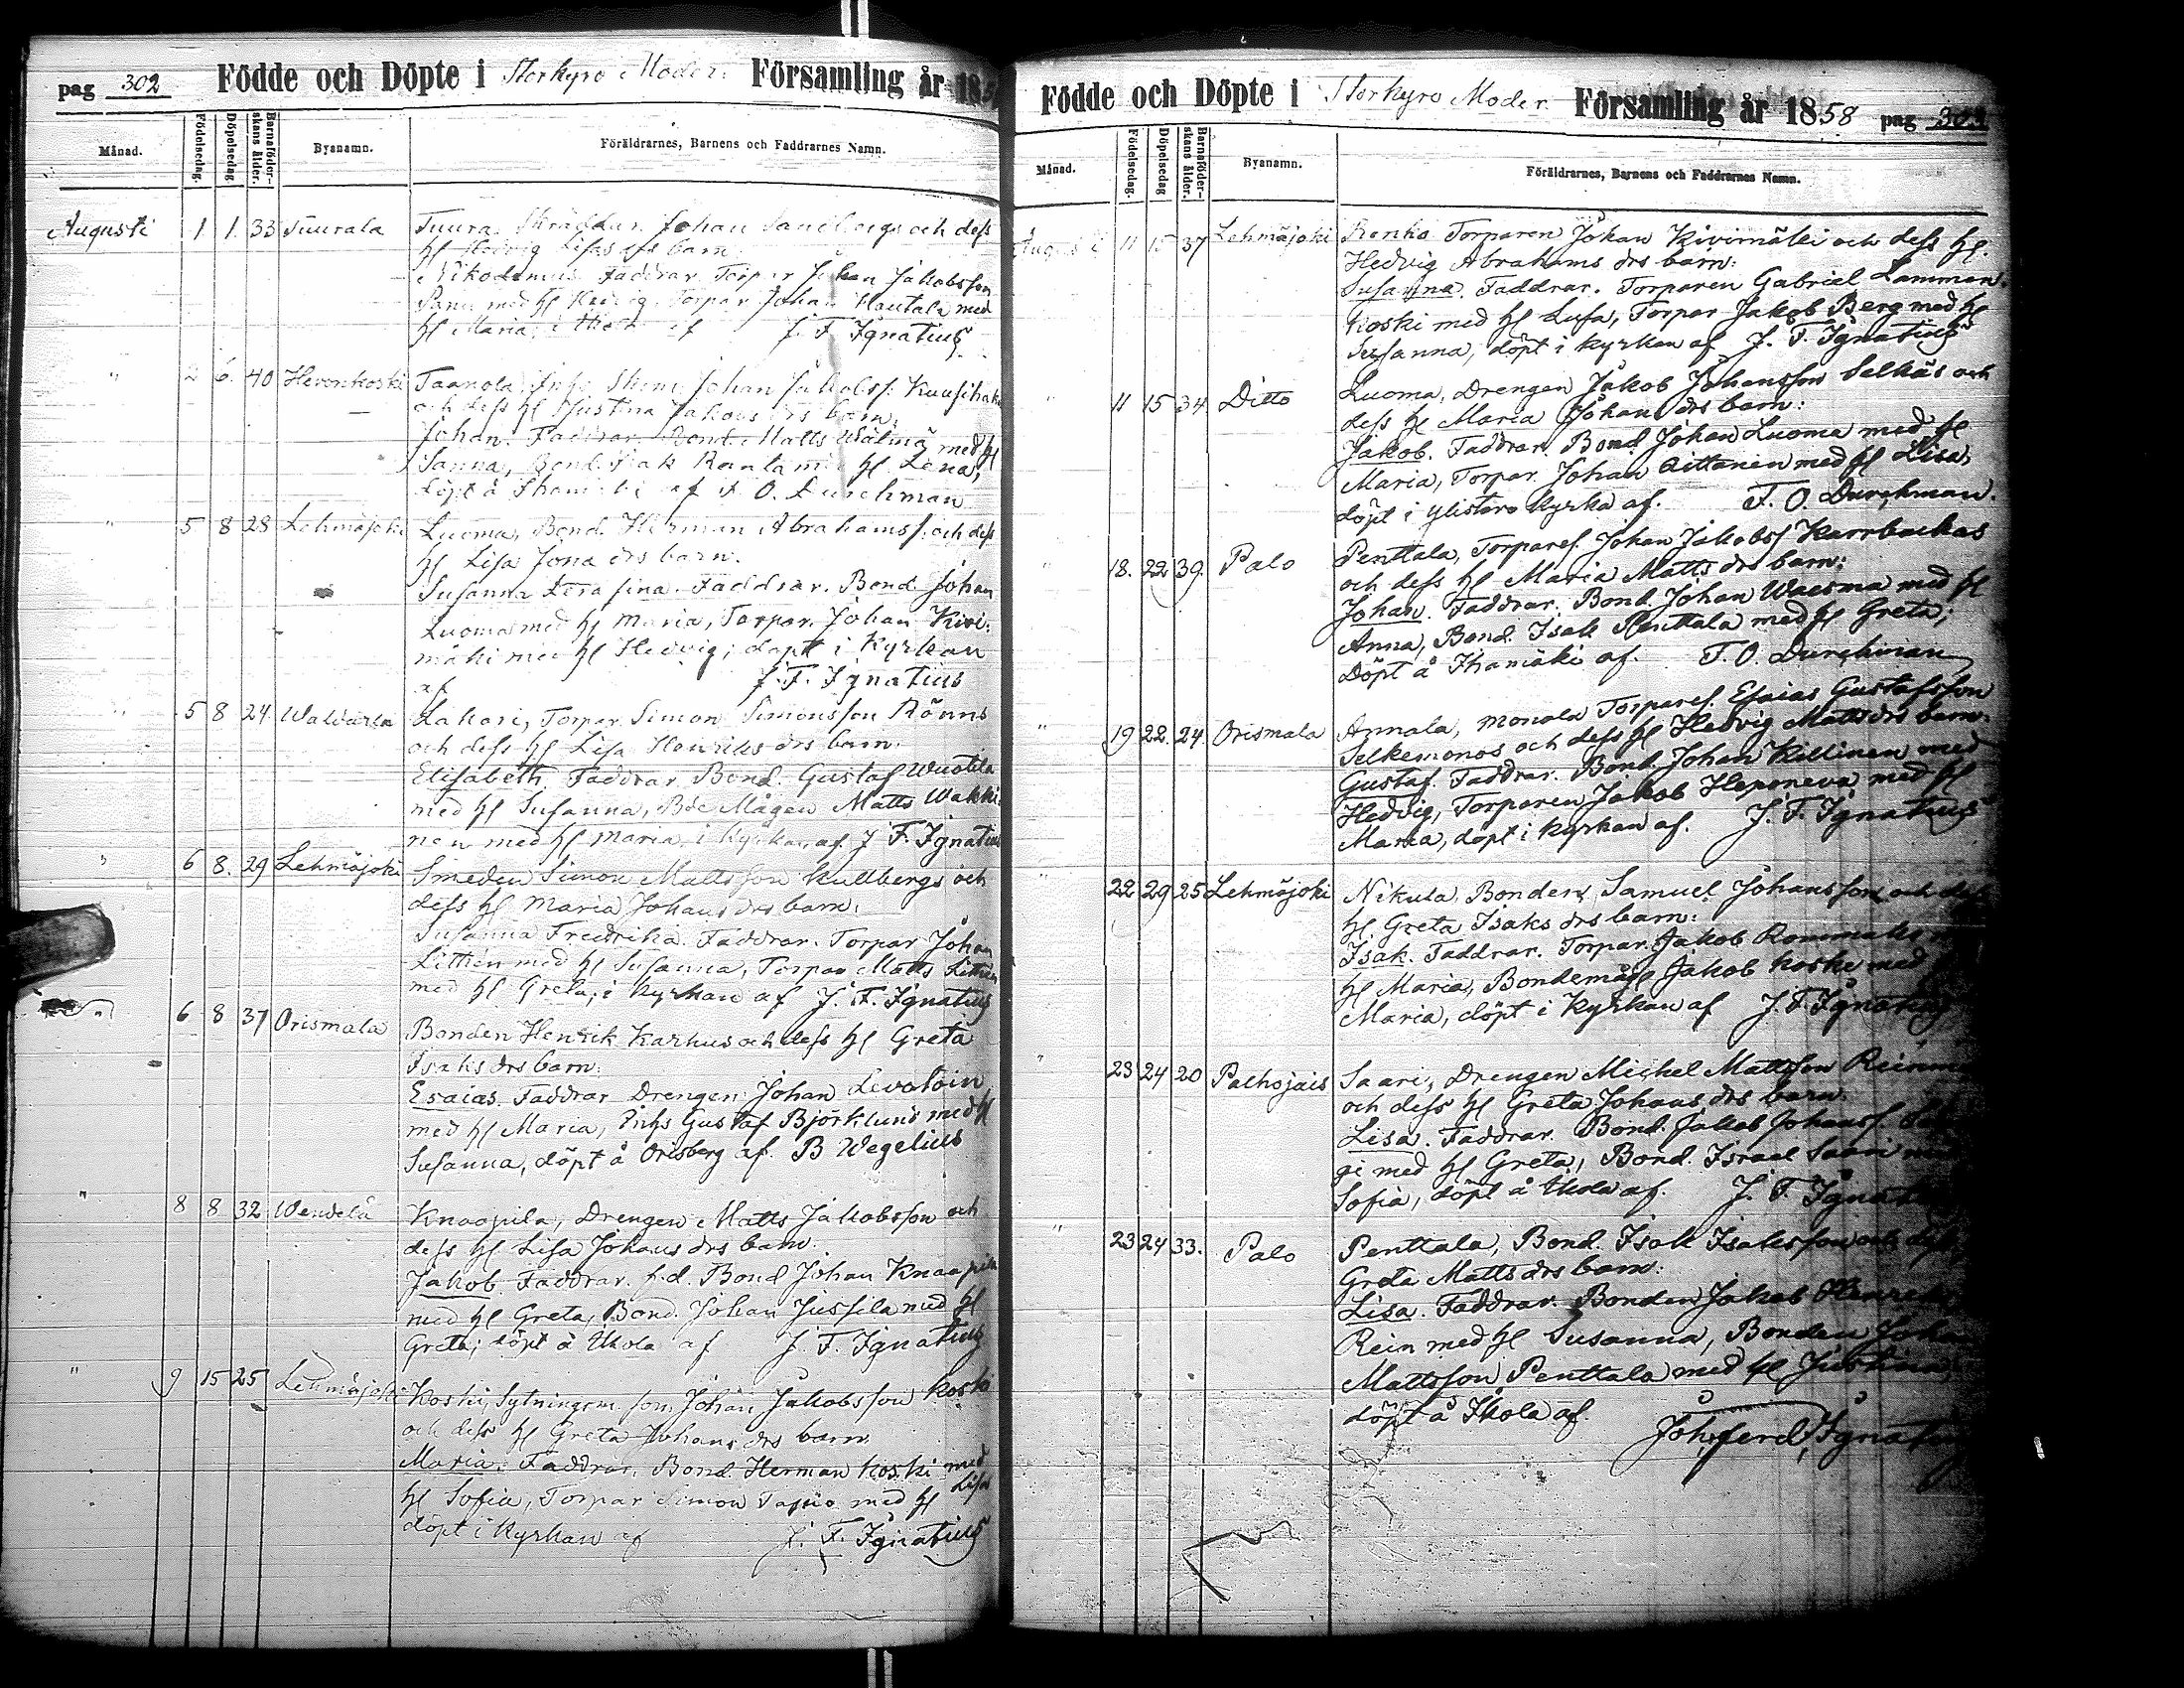 pag 302 Födde och Döpte i Storkyro Moder Församling år 185
Månad. Födelsedag. Döpelsedag Barnaföder-skans ålder. Byanamn. Föräldrarnes, Barnens och Faddrarnes Namn.
Augusti 1 1 33 Tuurala Tuura. Skräddar. Johan Sandbergs och dess
hu Hedvig Lisas drs barn
Nikodemus Faddrar Torpar Johan Jakobsson
med hu Hedvig Torpar Johan Rautala med
hu Maria, i af J. F. Ignatius
" 2 6. 40 Hevonkoski Taanola, Johan Jakobss. Kuusihaka
och dess hu Justina Jakobs drs barn.
Johan. Faddrar. Bond. Matts Välmä med hu
Sanna, Bond. Isak Ranta med hu Lena,
döpt å af F. O. Durchman
" 5 8 28 Lehmäjoki Luoma, Bond. Herman Abrahamss. och dess
hu Lisa Jona drs barn.
Susanna Serafina. Faddrar. Bond. Johan
Luoma med hu Maria, Torpar. Johan Kivi-
mäki med hu Hedvig; döpt i Kyrkan
af J. F. Ignatius
" 5 8 24 Waldarla Lakari, Torpar Simon Simonsson Rönns
och dess hu Lisa Henriks drs barn.
Elisabeth. Faddrar Bond. Gustaf Wuotila
med hu Susanna, Bde Mågen Matts Wakki-
nen med hu Maria, i Kyrkan af J F. Ignatius
" 6 8. 29 Lehmäjoki Smeden Simon Mattsson Kullbergs och
dess hu Maria Johans drs barn.
Susanna Fredrika. Faddrar. Torpar Johan
Lithén med hu Susanna, Torpar Matts Lithén
med hu Greta, i kyrkan af J. F. Ignatius
" 6 8 37 Orismala Bonden Henrik Karhus och dess hu Greta
Isaks drs barn:
Esaias. Faddrar Drengen Johan Levoloin
med hu Maria, Gustaf Björklund med hu
Susanna, döpt å Orisberg af B Wegelius
" 8 8 32 Wendelä Knaapila, Drengen Matts Jakobsson och
dess hu Lisa Johans drs barn.
Jakob. Faddrar. f.d. Bond Johan Knaapila
med hu Greta, Bond. Johan Jussila med hu
Greta; döpt å Ikola af J. F. Ignatius
" 9 15 25 Lehmäjoki Koski, Sytningsm. son, Johan Jakobsson Koski
och dess hu Greta Johans drs barn.
Maria. Faddrar. Bond. Herman Koski med
hu Sofia, Torpar Simon Tapio med hu Lisa
döpt i kyrkan af J. F. Ignatius
Födde och Döpte i Storkyro Moder Församling år 1858 pag 303
Månad. Födelsedag. Döpelsedag Barnaföder-skans ålder. Byanamn. Föräldrarnes, Barnens och Faddrarnes Namn.
Augusti 11 15 37 Lehmäjoki Renko Torparen Johan Kivimäki och dess hu.
Hedvig Abrahams drs barn:
Susanna. Faddrar. Torparen Gabriel Lamman-
koski med hu Lusa, Torpar Jakob Berg med hu
Susanna, döpt i kyrkan af J. F. Ignatius
" 11 15 34 Ditto Luoma, Drengen Jakob Johansson Selkäs och
dess hu Maria Johans drs barn:
Jakob. Faddrar. Bond. Johan Luoma med hu
Maria, Torpar. Johan Rittanen med hu Lisa,
döpt i Ylistaro kyrka af. F. O. Durchman.
" 18. 22 39. Palo Penttala, Torpares. Johan Jakobss Karrbackas
och dess hu Maria Matts drs barn:
Johan. Faddrar. Bond. Johan Waesma med hu
Anna, Bond. Isak Penttala med hu Greta;
Döpt å Ihamäki af. F. O. Durchman
" 19 22. 24. Orismala Annala, Monola Torpares. Esaias Gustafsson
Selkemonos och dess hu Hedvig Matts drs barn.
Gustaf. Faddrar. Bond. Johan Killinen med
Hedvig, Torparen Jakob Heponeva med hu
Maria, döpt i kyrkan af. J. F. Ignatius
" 22 29 25 Lehmäjoki Nikula, Bonden Samuel Johansson och dess
hu Greta Isaks drs barn:
Isak. Faddrar. Torpar. Jakob Rommaks
hu Maria, Bondemåg Jakob Koski med
Maria, döpt i Kyrkan af J. F. Ignatius
" 23 24 20 Palhojais Saari, Drengen Michel Mattsson
och dess hu Greta Johans drs barn.
Lisa. Faddrar. Bond. Jakob Johanss.
gi med hu Greta, Bond. Israel Saari
Sofia, döpt å Ikola af. J. F. Ignatius
" 23 24 33. Palo Penttala, Bond. Isak Isaksson och dess
Greta Matts drs barn:
Lisa. Faddrar. Bonden Jakob
Rein med hu Susanna, Bonden Johan
Mattsson Penttala med hu Justina,
döpt å Ikola af.
Joh. ferd. Ignatius